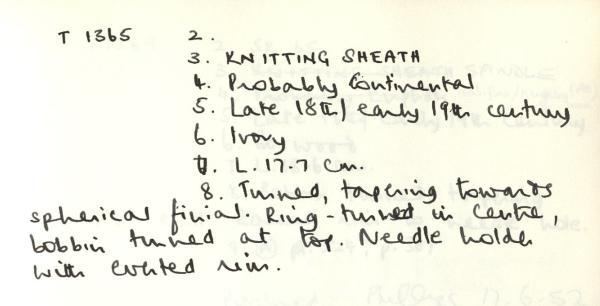 T 1365 2.
3. KNITTING SHEATH
4. Probably Continental
5. Late 18th/early 19th century
6. Ivory
7. L. 17.7 cm.
8. Turned, tapering towards
spherical finial. Ring-turned in centre,
bobbin turned at top. Needle holder
with everted rim.